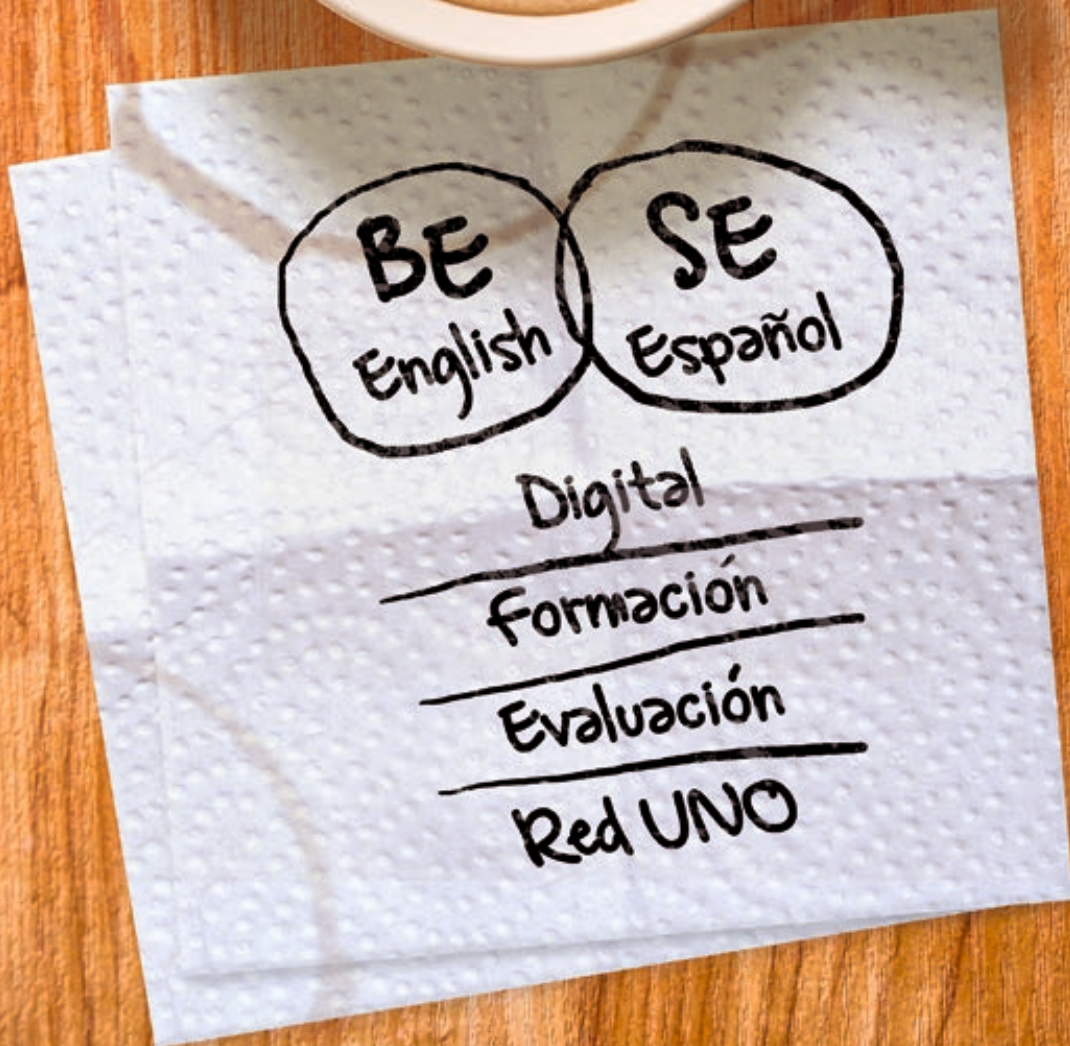 BE SE
English Español
Digital
Formación
Evaluación
Red UNO